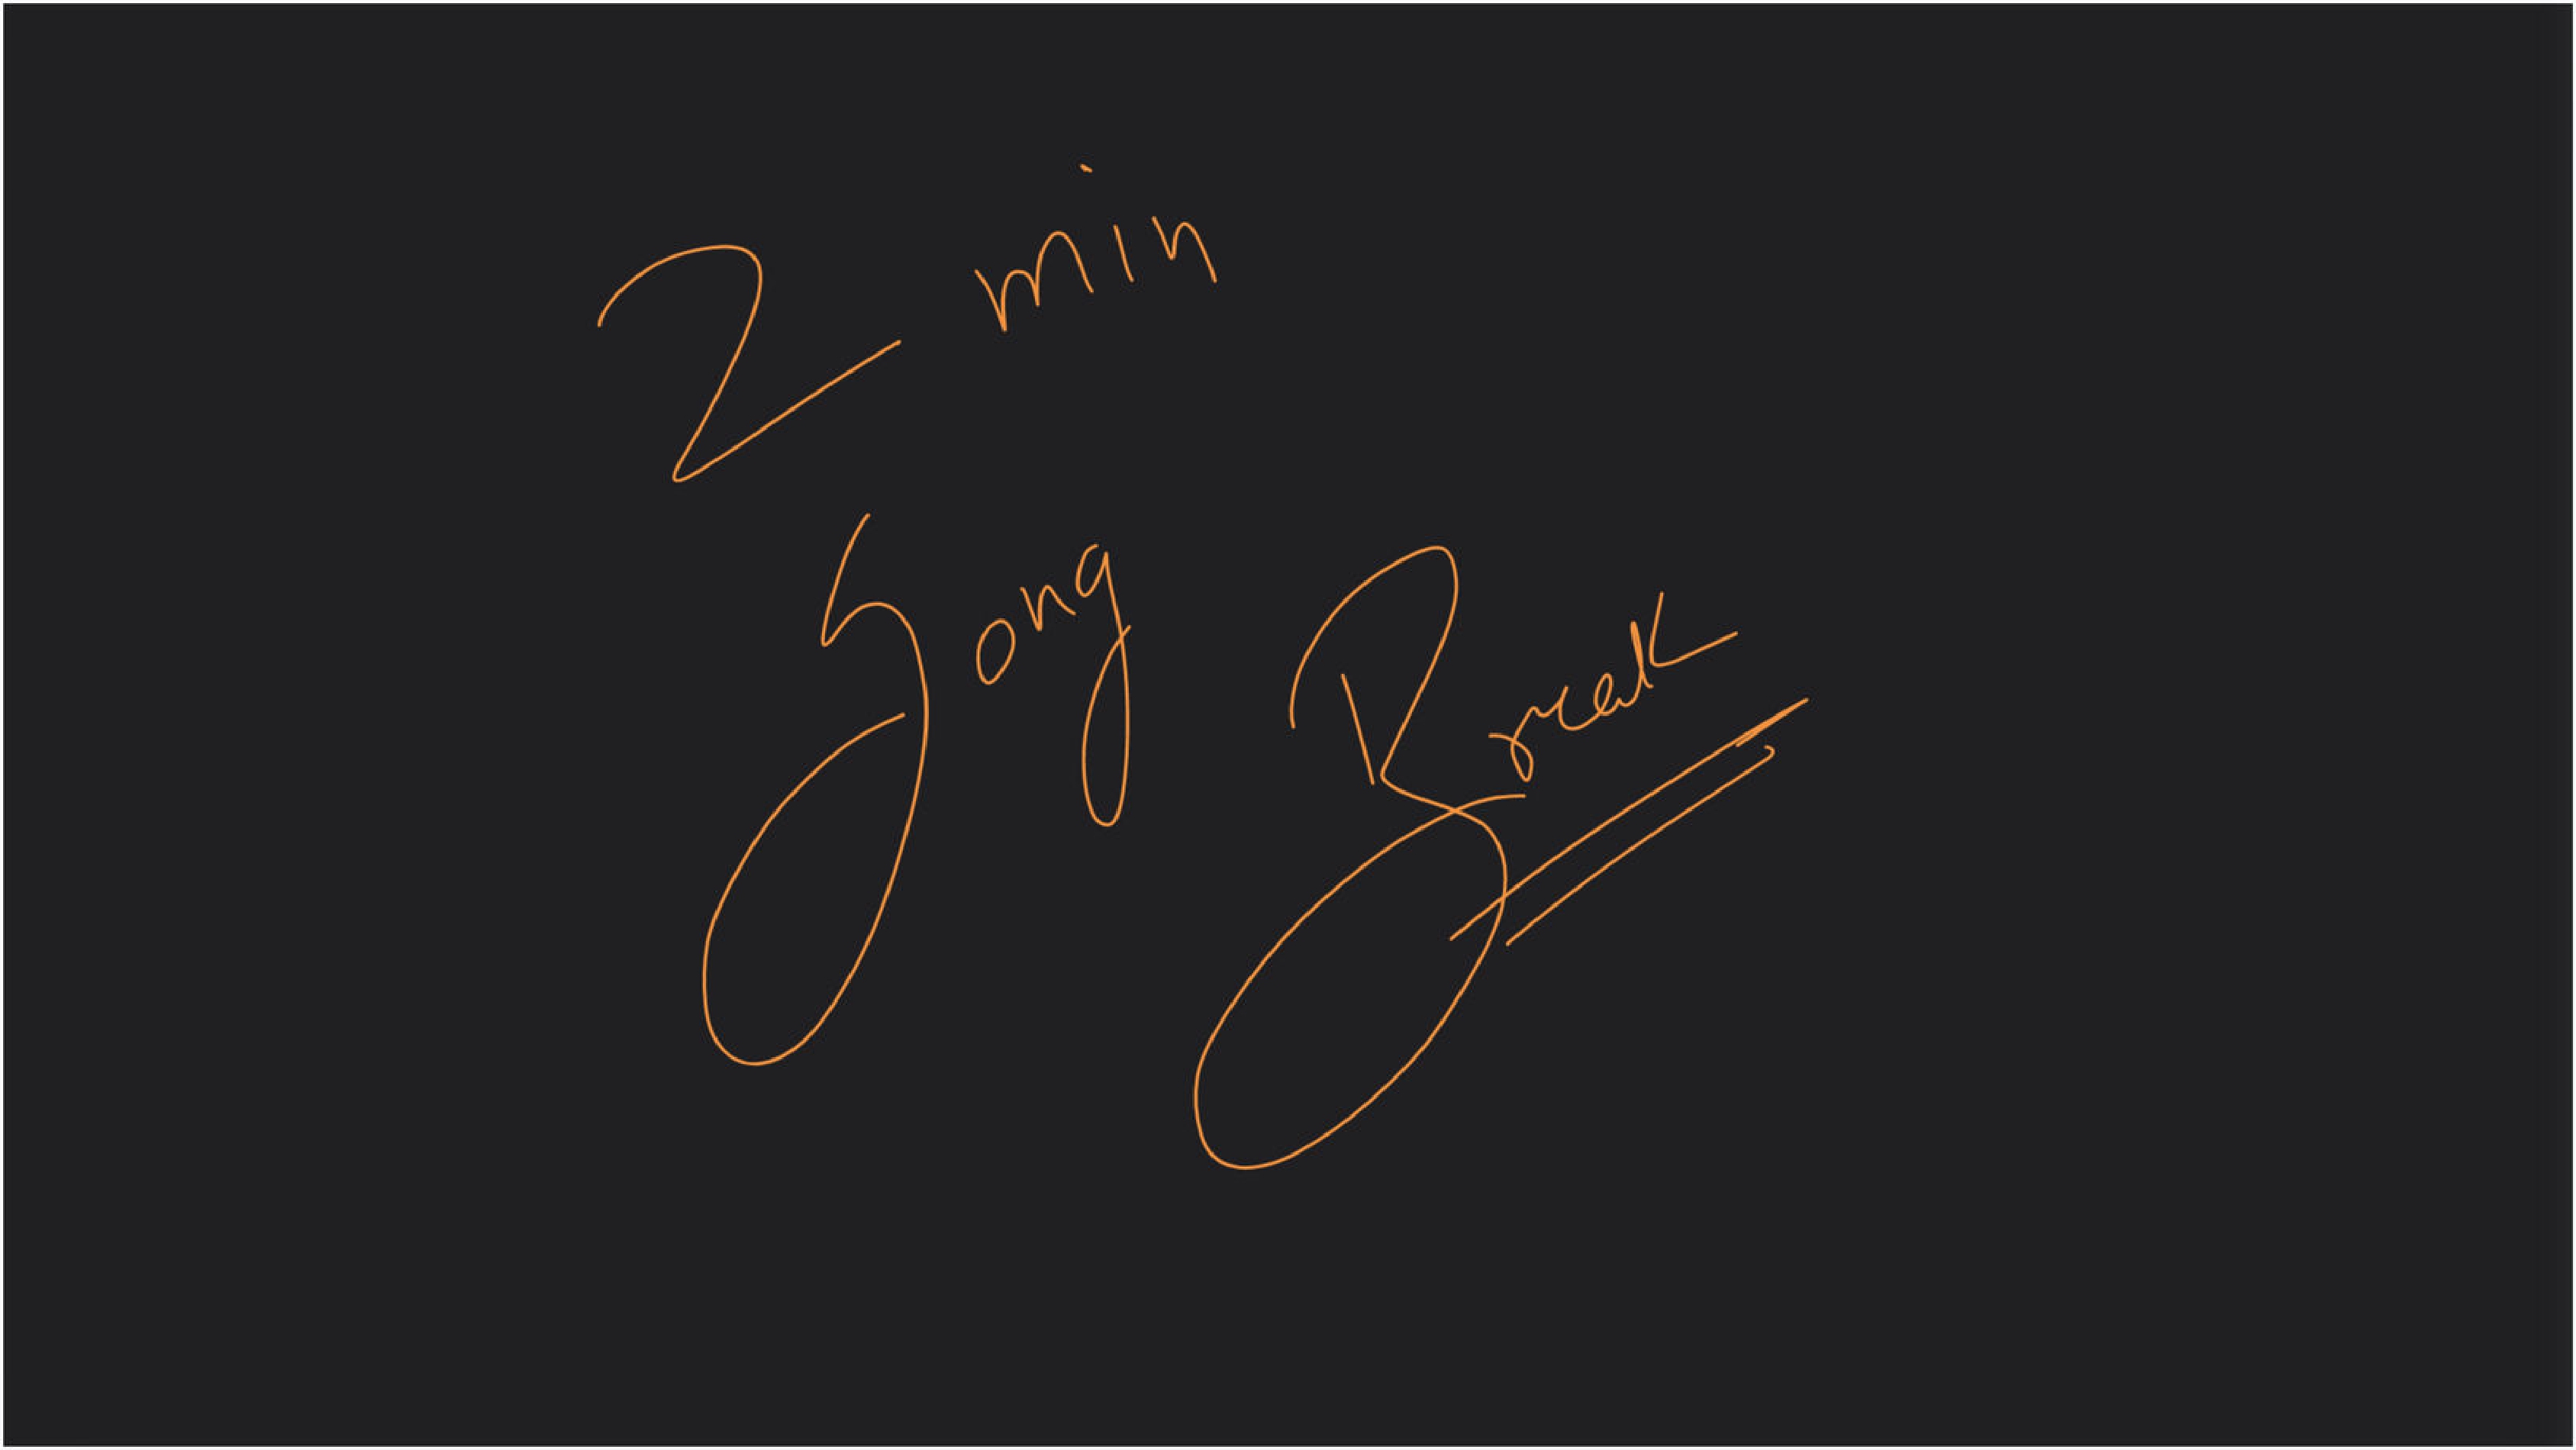 2 min
Song Break